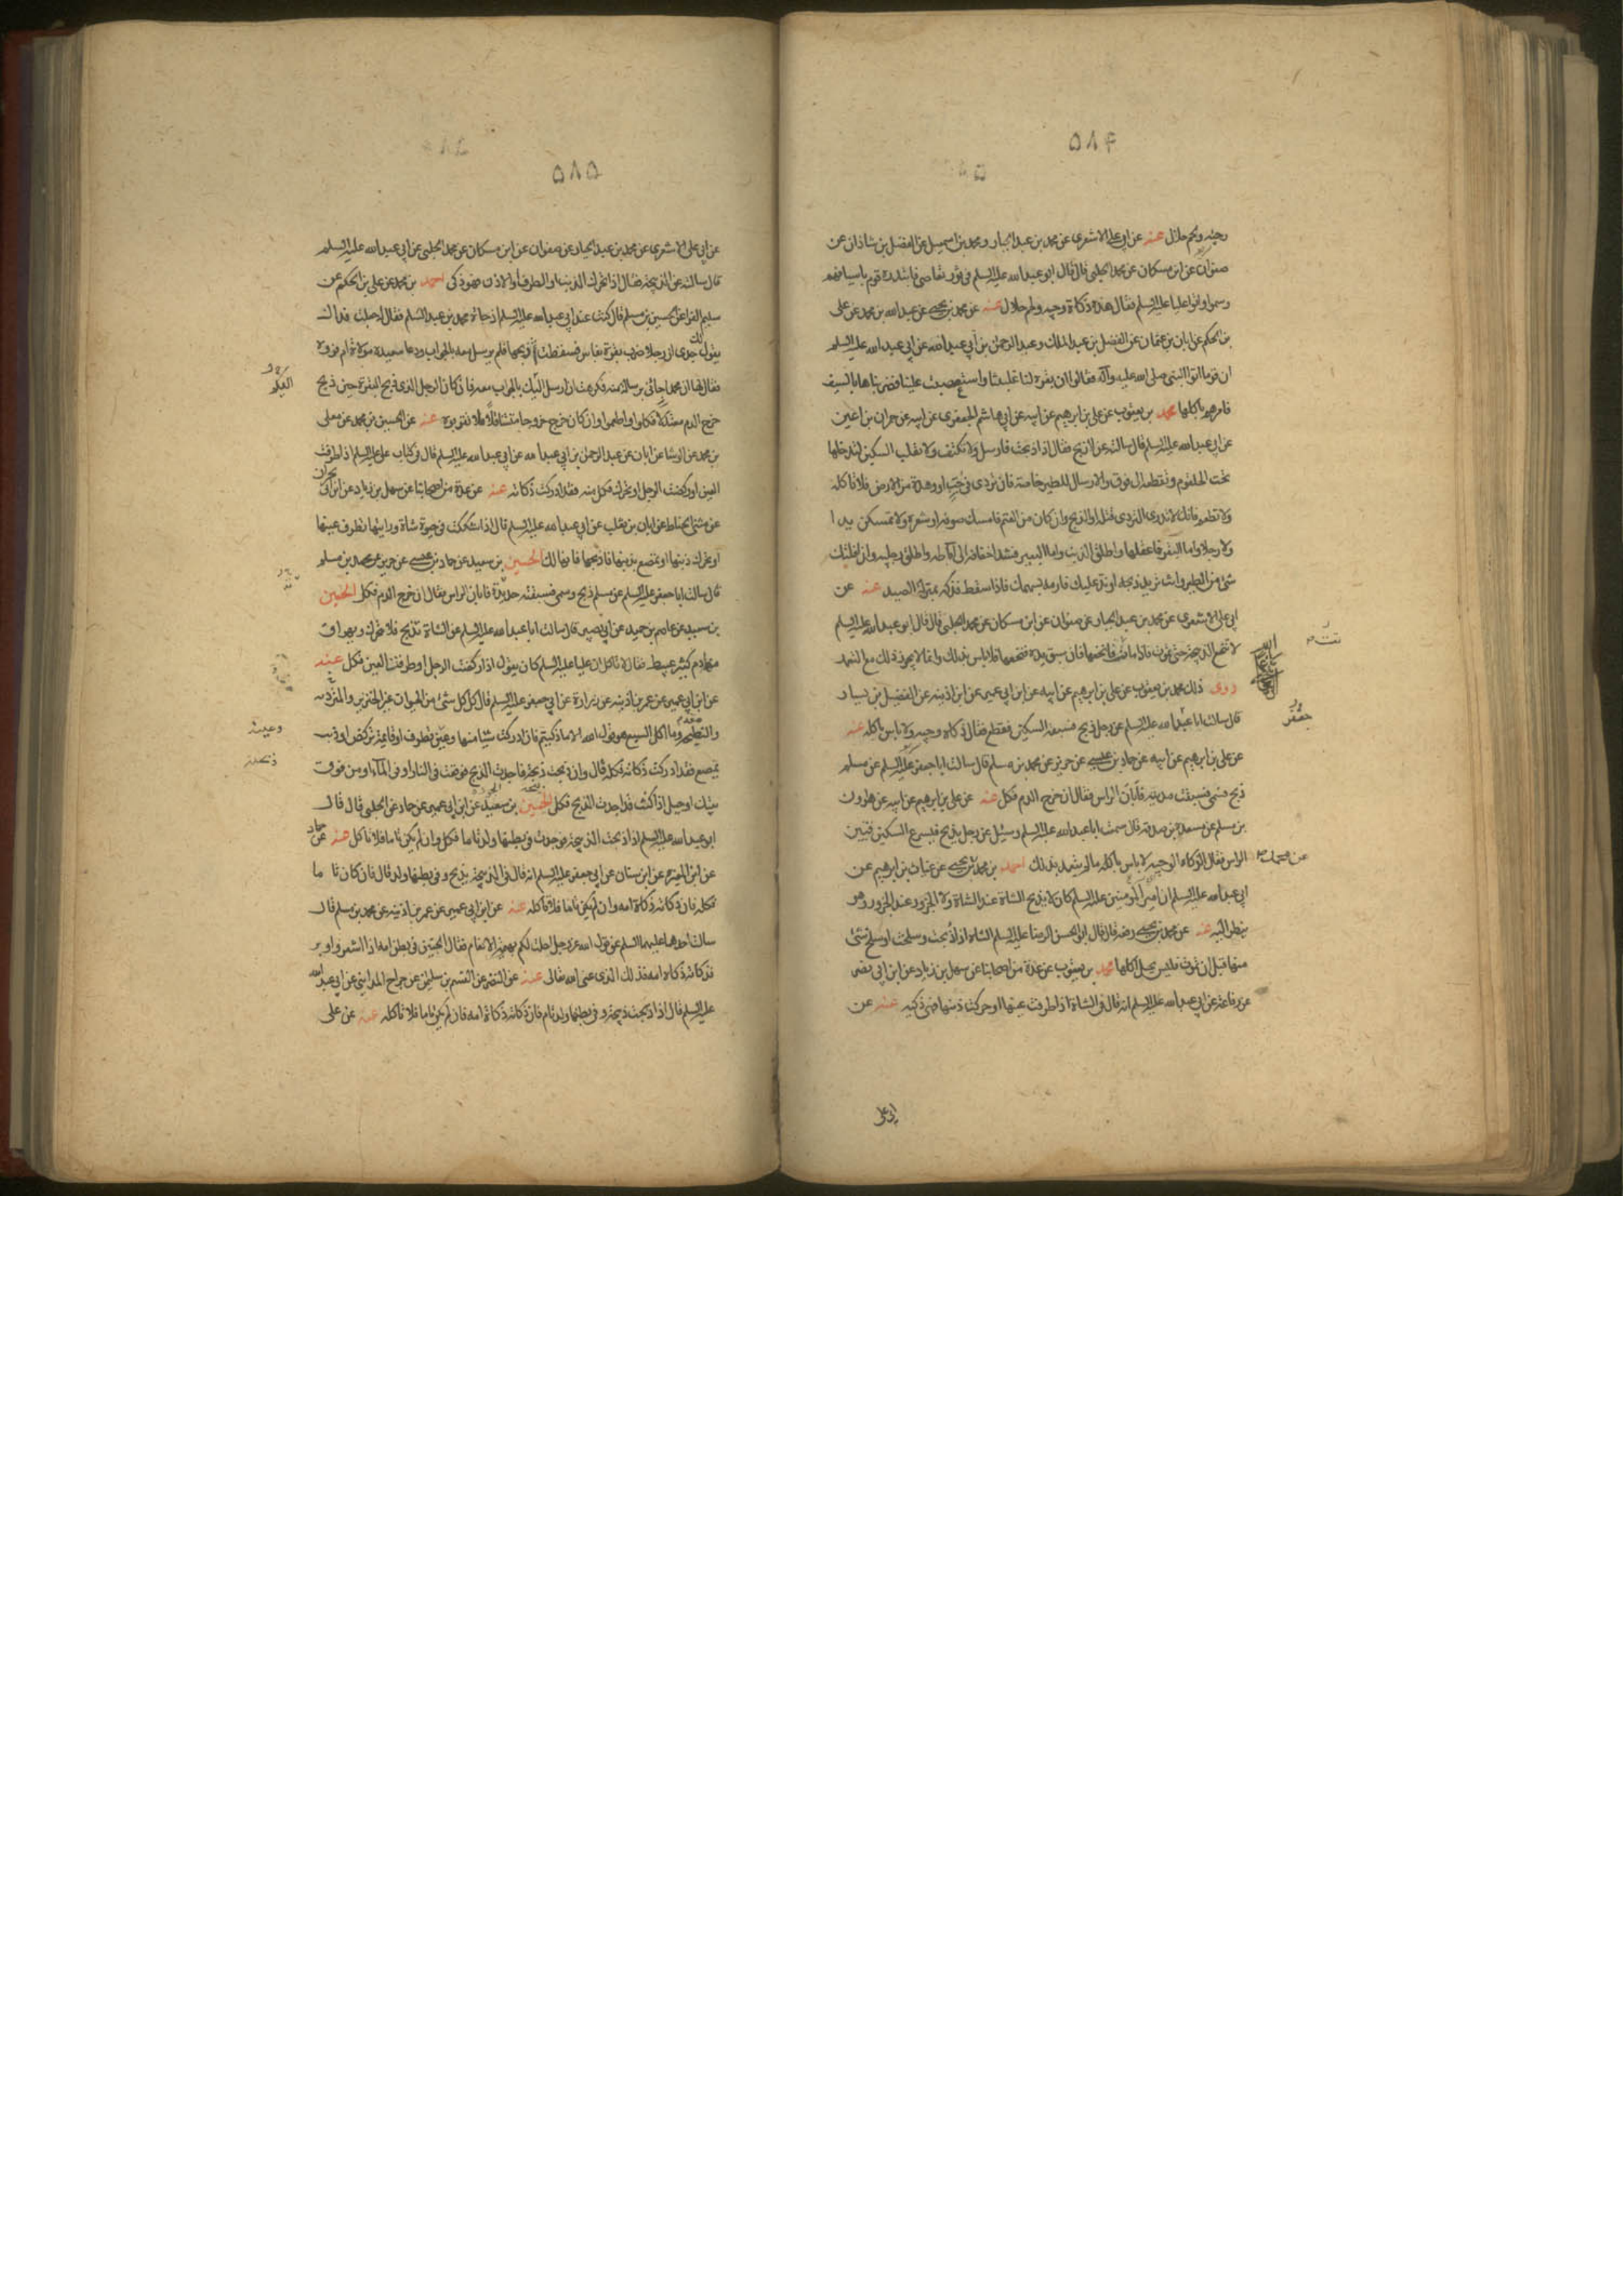 ۵۸۴
وحيه ولحم حلال عنه عن ابي علي الاشعري عن محمد بن عبد الجبار ومحمد بن اسمعيل عن الفضل بن شاذان عن
صفوان عن ابن مسكان عن محمد الحلبي قال قال ابو عبد الله عليه السلم في ثور تعاصى فابتدره قوم باسيافهم
وسموا واتوا عليا عليه السلم فقال هذه ذكاة وحيه ولحم حلال عنه عن محمد بن يحيى عن عبد الله بن محمد عن علي
بن الحكم عن ابان بن عثمان عن الفضل بن عبد الملك وعبد الرحمن بن ابي عبد الله عن ابي عبد الله عليه السلم
ان قوما اتوا النبي صلى الله عليه وآله فقالوا ان بقرة لنا غلبتنا واستصعبت علينا فضربناها بالسيف
فامرهم باكلها محمد بن يعقوب عن علي بن ابرهيم عن ابيه عن ابي هاشم الجعفري عن ابيه عن حمران بن اعين
عن ابي عبد الله عليه السلم قال سالته عن الذبح فقال اذا ذبحت فارسل ولا تكتف ولا تقلب السكين لتدخلها
تحت الحلقوم وتقطعه الى فوق والارسال للطير خاصة فان تردى في جب او وهدة من الارض فلا تاكله
ولا تطعم فانك لا تدري التردي قتله او الذبح وان كان من الغنم فامسك صوفه او شعره ولا تمسكن يدا
ولا رجلا واما البقر فاعقلها واطلق الذنب واما البعير فشد اخفافه الى آباطه واطلق رجليه وان افلتك
شئ من الطير وانت تريد ذبحه او ند عليك فارمه بسهمك فاذا سقط فذكه بمنزلة الصيد عنه عن
ابي علي الاشعري عن محمد بن عبد الجبار عن صفوان عن ابن مسكان عن محمد الحلبي قال قال ابو عبد الله عليه السلم
لا تنخع الذبيحة حتى تموت فاذا ماتت فانخعها فان سبق يده فنخعها فلا باس بذلك وانما لا يجوز ذلك مع التعمد
روى ذلك محمد بن يعقوب عن علي بن ابرهيم عن ابيه عن ابن ابي عمير عن ابن اذينه عن الفضيل بن يسار
قال سالت ابا عبد الله عليه السلم عن رجل ذبح فتسبقه السكين فقطع فقال ذكاة وحيه ولا باس باكله عنه
عن علي بن ابرهيم عن ابيه عن حماد بن عيسى عن حريز عن محمد بن مسلم قال سالت ابا جعفر عليه السلم عن مسلم
جعفر
ذبح فسمى فسبقت مديته فابان الراس فقال ان خرج الدم فكل عنه عن علي بن ابرهيم عن ابيه عن هارون
بن مسلم عن مسعدة بن صدقه قال سمعت ابا عبد الله عليه السلم وسئل عن رجل يذبح فيسرع السكين فتبين
الراس فقال الذكاه الوحيه لا باس باكله ما لم يتعمد بذلك احمد بن محمد بن يحيى عن غياث بن ابرهيم عن
ابي عبد الله عليه السلم ان امير المومنين عليه السلم كان لا يذبح الشاة عند الشاة ولا الجزور عند الجزور وهو
ينظر اليه عنه عن محمد بن يحيى رفعه قال قال ابو الحسن الرضا عليه السلم الشاة اذا ذبحت وسلخت او سلخ شئ
منها قبل ان تموت فليس يحل اكلها محمد بن يعقوب عن عدة من اصحابنا عن سهل بن زياد عن ابن ابي نصر
عن رفاعة عن ابي عبد الله عليه السلم انه قال في الشاة اذا طرفت عينها او حركت ذنبها فهي ذكيه عنه عن
ابي علي
۵۸۵
عن ابي علي الاشعري عن محمد بن عبد الجبار عن صفوان عن ابن مسكان عن محمد الحلبي عن ابي عبد الله عليه السلم
قال سالته عن الذبيحة فقال اذا تحرك الذنب او الطرف او الاذن فهو ذكي احمد بن محمد عن علي بن الحكم عن
سليم الفرا عن الحسين بن مسلم قال كنت عند ابي عبد الله عليه السلم اذ جائه محمد بن عبد السلم فقال له جعلت فداك
يقول لك جدي ان رجلا ضرب بقرة بفاس فسقطت ثم ذبحها فلم يرسل معه بالجواب ودعا سعيدة مولاة ام فروه
فقال لها ان محمدا جائني برسالة منك فكرهت ان ارسل اليك بالجواب معه فان كان الرجل الذي ذبح البقرة حين ذبح
خرج الدم معتدلا فكلوا واطعموا وان كان خرج خروجا متثاقلا فلا تقربوه عنه عن الحسين بن محمد عن معلى
بن محمد عن الوشا عن ابان عن عبد الرحمن بن ابي عبد الله عن ابي عبد الله عليه السلم قال في كتاب علي عليه السلم اذا طرفت
العين او ركضت الرجل او تحرك فكل منه فقد ادركت ذكاته عنه عن عدة من اصحابنا عن سهل بن زياد عن ابن ابي نجران
عن مثنى الحناط عن ابان بن تغلب عن ابي عبد الله عليه السلم قال اذا شككت في حيوة شاة ورايتها تطرف عينها
او تحرك ذنبها او تمصع بذنبها فاذبحها فانها لك الحسين بن سعيد عن حماد بن عيسى عن حريز عن محمد بن مسلم
قال سالت ابا جعفر عليه السلم عن مسلم ذبح وسمى فسبقته حديدته فابان الراس فقال ان خرج الدم فكل الحسين
بن سعيد عن عاصم بن حميد عن ابي بصير قال سالت ابا عبد الله عليه السلم عن الشاة تذبح فلا تتحرك ويهراق
منها دم كثير عبيط فقال لا تاكل ان عليا عليه السلم كان يقول اذا ركضت الرجل او طرفت العين فكل عنه
عن ابن ابي عمير عن عمر بن اذينه عن زرارة عن ابي جعفر عليه السلم قال كل كل شئ من الحيوان غير الخنزير والمتردية
والنطيحه وما اكل السبع وهو قول الله الا ما ذكيتم فان ادركت شيئا منها وعين تطرف او قايمة تركض او ذنب
يمصع فقد ادركت ذكاته فكله قال وان ذبحت ذبيحة فاجدت الذبح فوقعت في النار او في المآء او من فوق
بيتك او جبل اذا كنت قد اجدت الذبح فكل الحسين بن سعيد عن ابن ابي عمير عن حماد عن الحلبي قال قال
ابو عبد الله عليه السلم اذا ذبحت الذبيحة فوجدت في بطنها ولدا تاما فكل وان لم يكن تاما فلا تاكل عنه عن حماد
عن ابن المغيرة عن ابن سنان عن ابي جعفر عليه السلم انه قال في الذبيحة تذبح وفي بطنها ولد قال فان كان تاما
فكله فان ذكاته ذكاة امه وان لم يكن تاما فلا تاكله عنه عن ابن ابي عمير عن عمر بن اذينه عن محمد بن مسلم قال
سالت احدهما عليهما السلم عن قول الله عز وجل احلت لكم بهيمة الانعام فقال الجنين في بطن امه اذا اشعر واوبر
فذكاته ذكاة امه فذلك الذي عنى الله تعالى عنه عن النضر عن القسم بن سليمن عن جراح المدايني عن ابي عبد الله
عليه السلم قال اذا ذبحت ذبيحة وفي بطنها ولد تام فان ذكاته ذكاة امه فان لم يكن تاما فلا تاكله عنه عن علي